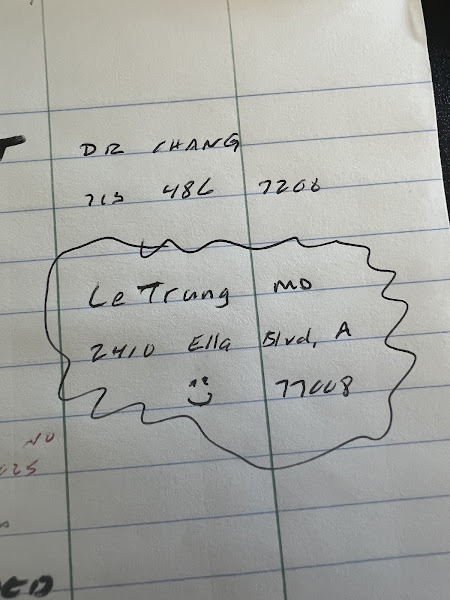 DR CHANG
713 486 7206
Le Trung MD
2410 Ella Blvd, A
77008
NO
025
ED